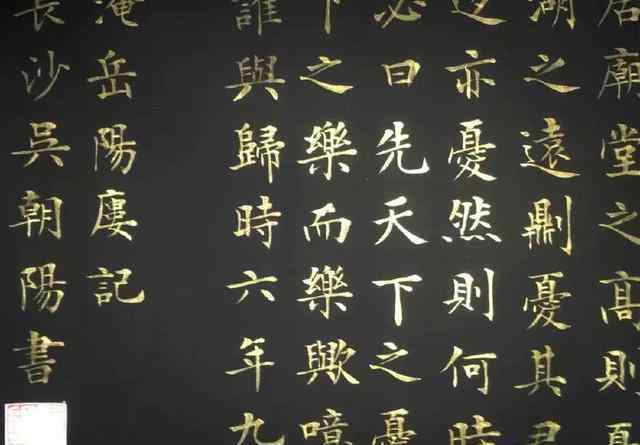 居廟堂之髙則憂
湖之遠則憂其君
退亦憂然則何時
必曰先天下之憂
下之樂而樂歟噫
誰與歸時六年九
淹岳陽廔記
長沙吳朝陽書